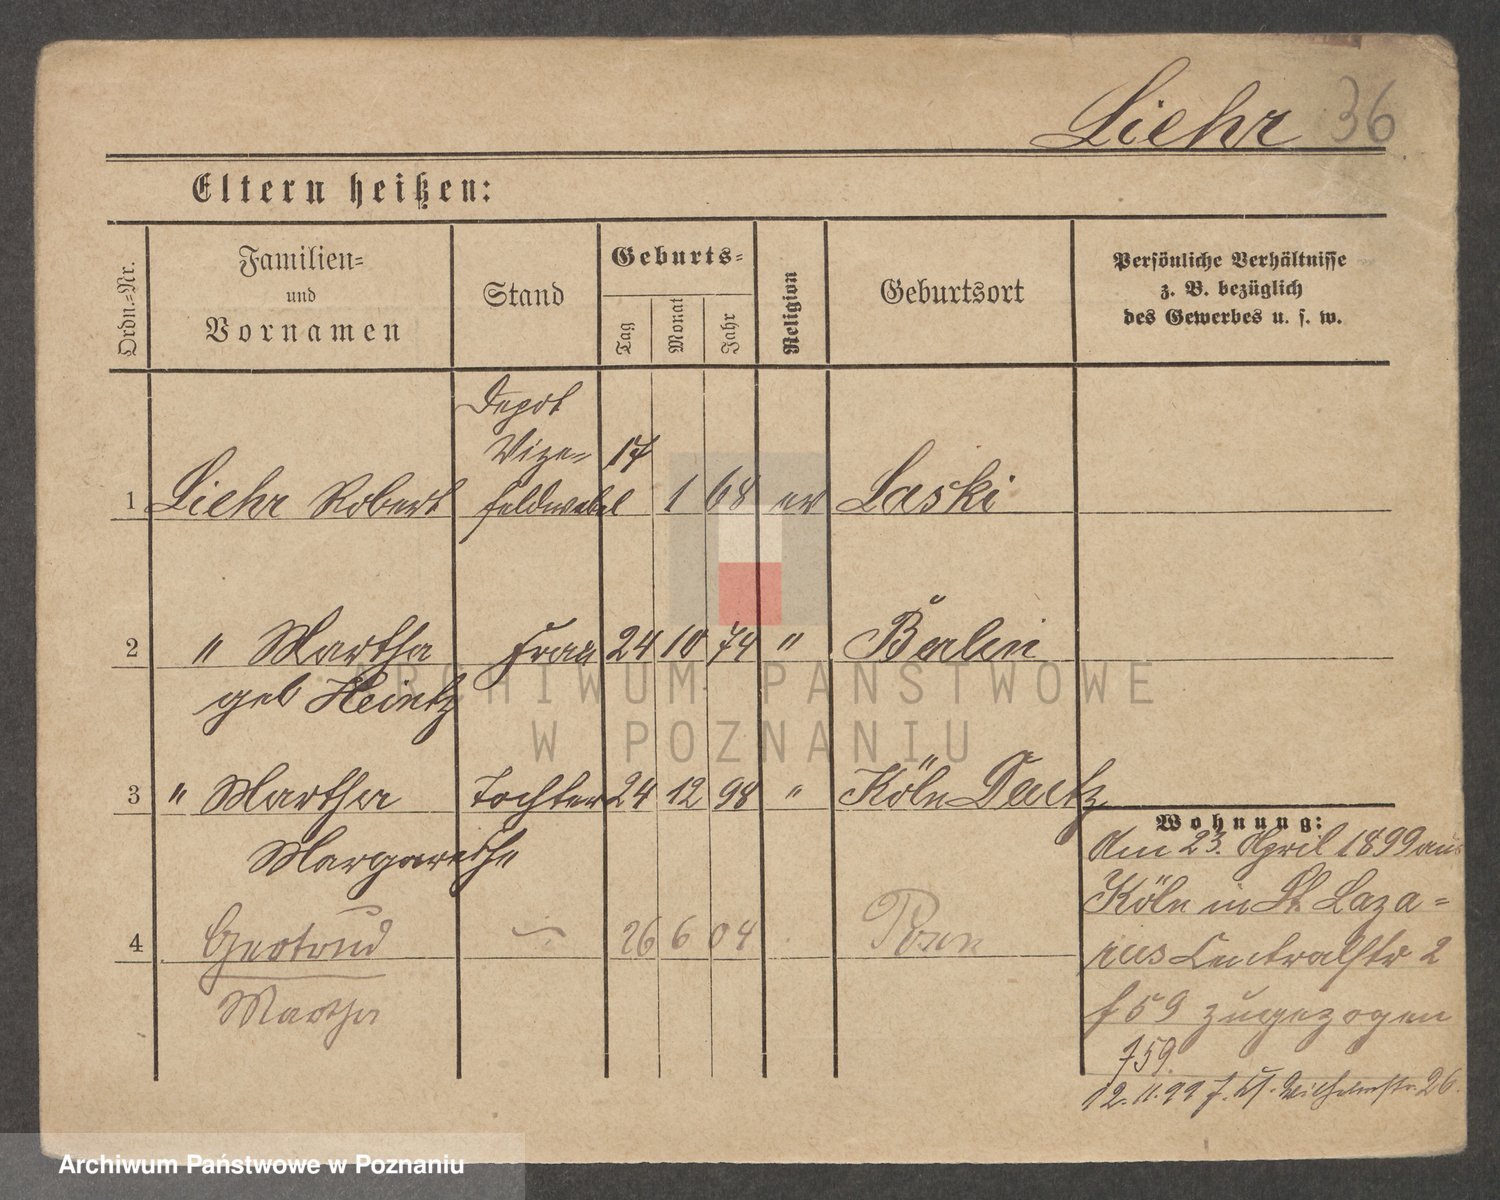 Liehr 36
Eltern heißen:
Ordn.-Nr.
Familien-
und
Vornamen
Stand
Geburts-
Tag
Monat
Jahr
Religion
Geburtsort
Persönliche Verhältnisse
z. B. bezüglich
des Gewerbes u. s. w.
Depot
Vize-
1 Liehr Robert feldwebel 17 1 68 ev Laski
2 " Martha Frau 24 10 74 " Berlin
geb Heintz
3 " Martha Tochter 24 12 98 " Köln Deutz
Margarethe
4 Gertrud 26 6 04 Posen
Martha
Wohnung:
Am 23. April 1899 aus
Köln in St. Laza-
rus Centralstr 2
f 59 zugezogen
f59.
12.11.99 Wilhelmstr. 26.
ARCHIWUM PAŃSTWOWE
W POZNANIU
Archiwum Państwowe w Poznaniu